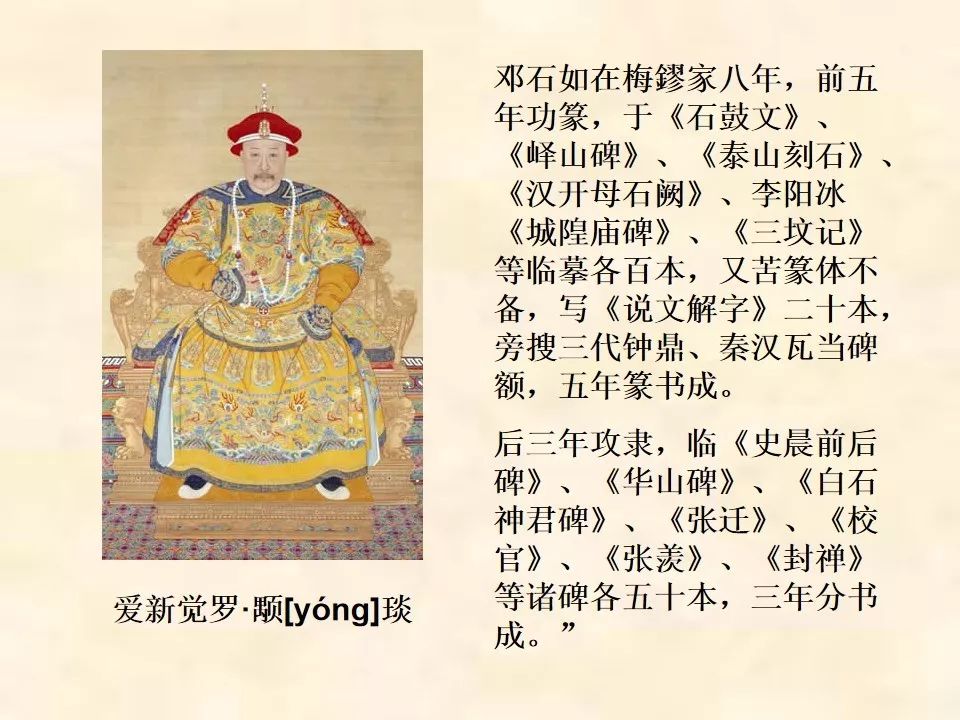 邓石如在梅鏐家八年，前五
年功篆，于《石鼓文》、
《峄山碑》、《泰山刻石》、
《汉开母石阙》、李阳冰
《城隍庙碑》、《三坟记》
等临摹各百本，又苦篆体不
备，写《说文解字》二十本，
旁搜三代钟鼎、秦汉瓦当碑
额，五年篆书成。
后三年攻隶，临《史晨前后
碑》、《华山碑》、《白石
神君碑》、《张迁》、《校
官》、《张羡》、《封禅》
等诸碑各五十本，三年分书
成。”
爱新觉罗·颙[yóng]琰